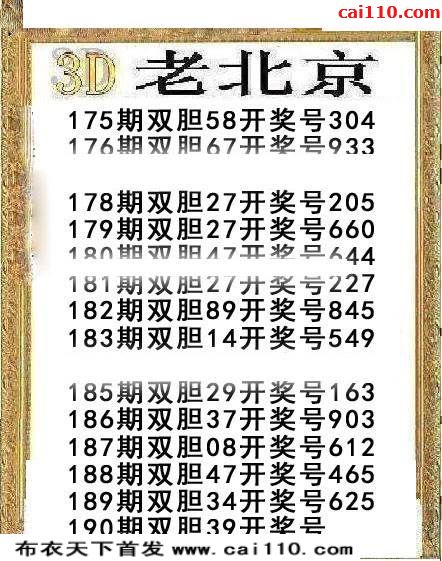 cai110.com
3D 老北京
175期双胆58开奖号304
176期双胆67开奖号933
178期双胆27开奖号205
179期双胆27开奖号660
180期双胆47开奖号644
181期双胆27开奖号227
182期双胆89开奖号845
183期双胆14开奖号549
185期双胆29开奖号163
186期双胆37开奖号903
187期双胆08开奖号612
188期双胆47开奖号465
189期双胆34开奖号625
190期双胆39开奖号
布衣天下首发 www.cai110.com